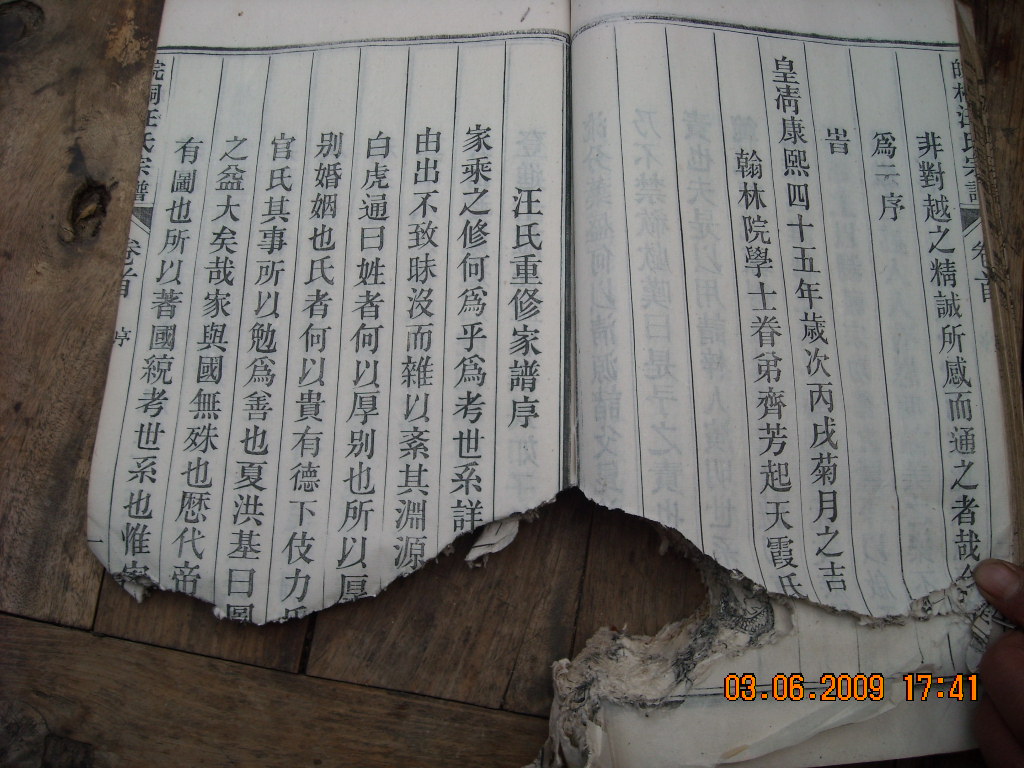 非對越之精誠所感而通之者哉
爲序
旹
皇清康熙四十五年歲次丙戌菊月之吉
翰林院學士眷弟齊芳起天霞氏
汪氏重修家譜序
家乘之修何爲乎爲考世系詳
由出不致昧沒而雜以紊其淵源
白虎通曰姓者何以厚别也所以厚
别婚姻也氏者何以貴有德下伎力
官氏其事所以勉爲善也夏洪基曰圖
之益大矣哉家與國無殊也歴代帝
有圖也所以著國統考世系也惟
汪氏宗譜
卷首
序
一
03.06.2009 17:41